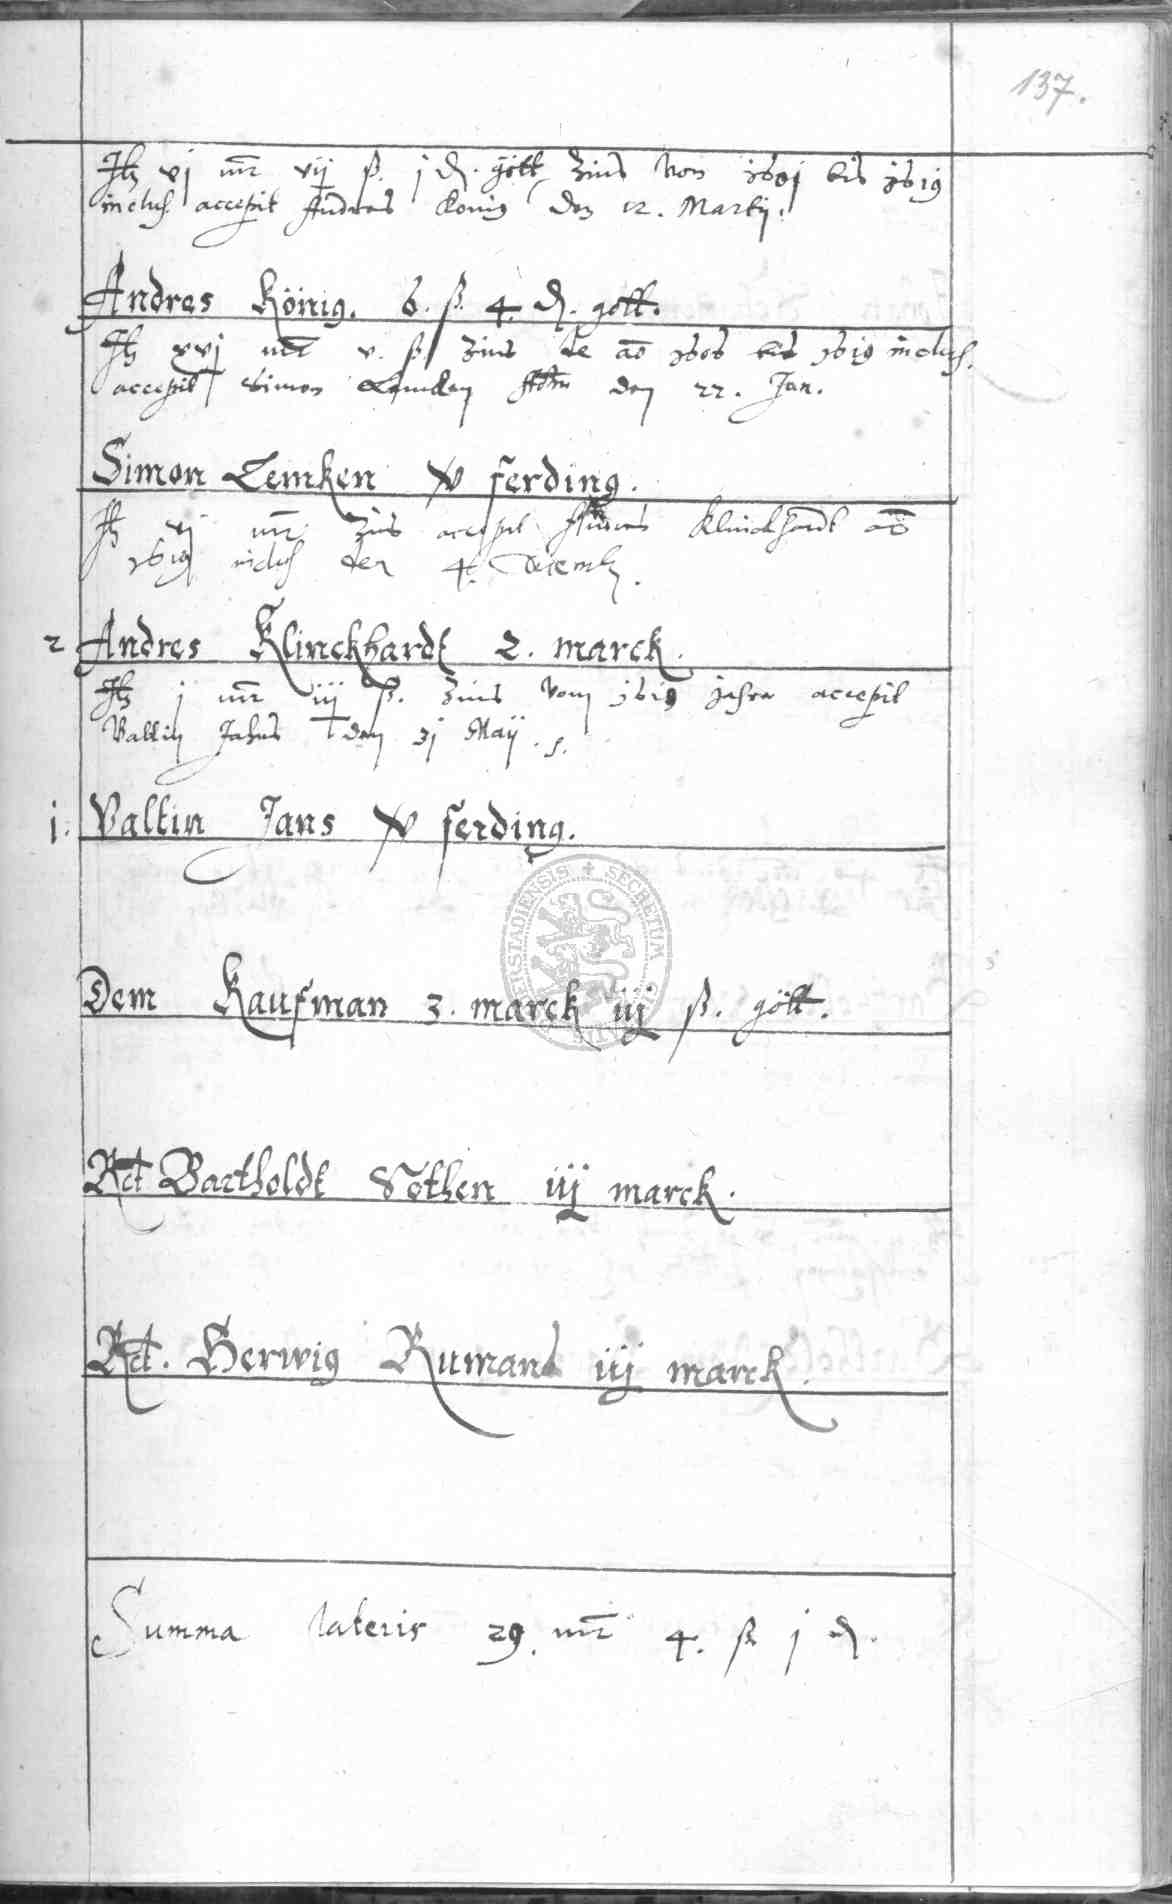 137.
It vj mr vij ß. j d. gött zins von 1601 bis 1619
inclus. accepit Andreas Konig den 12. Martij.
Andres König. 6. ß. 4. d. gött.
It xvj mr v. ß zins de ao 1606 bis 1619 inclus.
accepit Simon Lemken den 22. Jan.
Simon Lemken xv ferding.
It vj mr zins accepit Andreas Klinckhardt ao
1619 inclus den 4. Decemb.
2 Andres Klinckhardt 2. marck.
It j mr iij ß. zins vom 1619 Jahre accepit
Valtin Jahns den 31 Maij.
j. Valtin Jans xv ferding.
Dem Kaufman 3. marck iij ß. gött.
Rct Bartholdt Sothen iij marck.
Rct. Herwig Rumans iij marck.
Summa lateris 29. mr 4. ß j d.